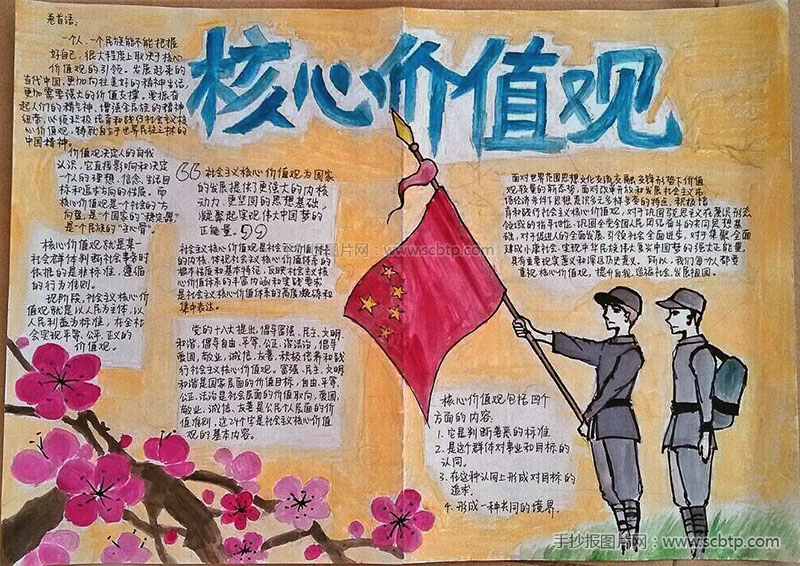 核心价值观
卷首语：
一个人、一个民族能不能把握
好自己，很大程度上取决于核心
价值观的引领。发展起来的
当代中国，更加向往美好的精神生活，
更加需要强大的价值支撑。要振奋
起人们的精气神、增强全民族的精神
纽带，必须积极培育和践行社会主义核
心价值观，铸就自立于世界民族之林的
中国精神。
价值观决定人的自我
认识，它直接影响和决定
一个人的理想、信念、生活目
标和追求方向的性质。而
核心价值观是一个社会的“方
向盘”，是个国家的“稳定器”
是一个民族的“主心骨”。
核心价值观就是某一
社会群体判断社会事务时
依据的是非标准，遵循
的行为准则。
现阶段，社会主义核心价
值观就是以人民为主体，以
人民利益为标准，在全社
会实现平等、公平、正义的
价值观。
社会主义核心价值观为国家
的发展提供了更强大的内核
动力、更坚固的思想基础，
凝聚起实现伟大中国梦的
正能量。
社会主义核心价值观是社会主义价值体系
的内核，体现社会主义核心价值体系的
根本性质和基本特征，反映社会主义核心
价值体系的丰富内涵和实践要求
是社会主义核心价值体系的高度凝练和
集中表达。
党的十八大提出，倡导富强、民主、文明、
和谐，倡导自由、平等、公正、法治，倡导
爱国、敬业、诚信、友善，积极培养和践
行社会主义核心价值观。富强、民主、文
明和谐是国家层面的价值目标，自由、平等、
公正、法治是社会层面的价值取向，爱国、
敬业、诚信、友善是公民个人层面的价
值准则，这24个字是社会主义核心价值
观的基本内容。
面对世界范围思想文化交流交融交锋形势下价值
观较量的新态势，面对改革开放和发展社会主义市
场经济条件下思想意识多元多样多变的特点，积极培
育和践行社会主义核心价值观，对于巩固马克思主义在意识形态
领域的指导地位、巩固全党全国人民团结奋斗的共同思想基
础，对于促进人的全面发展、引领社会全面进步，对于集聚全面
建成小康社会、实现中华民族伟大复兴中国梦的强大正能量，
具有重要现实意义和深远历史意义。所以，我们每个人都要
重视核心价值观，提升自我，造福社会，发展祖国。
核心价值观包括四个
方面的内容：
1. 它是判断善恶的标准
2. 是这个群体对事业和目标的
认同。
3. 在这种认同上形成对目标的
追求。
4. 形成一种共同的境界。
手抄报图片网：www.scbtp.com
手抄报图片网：www.scbtp.com